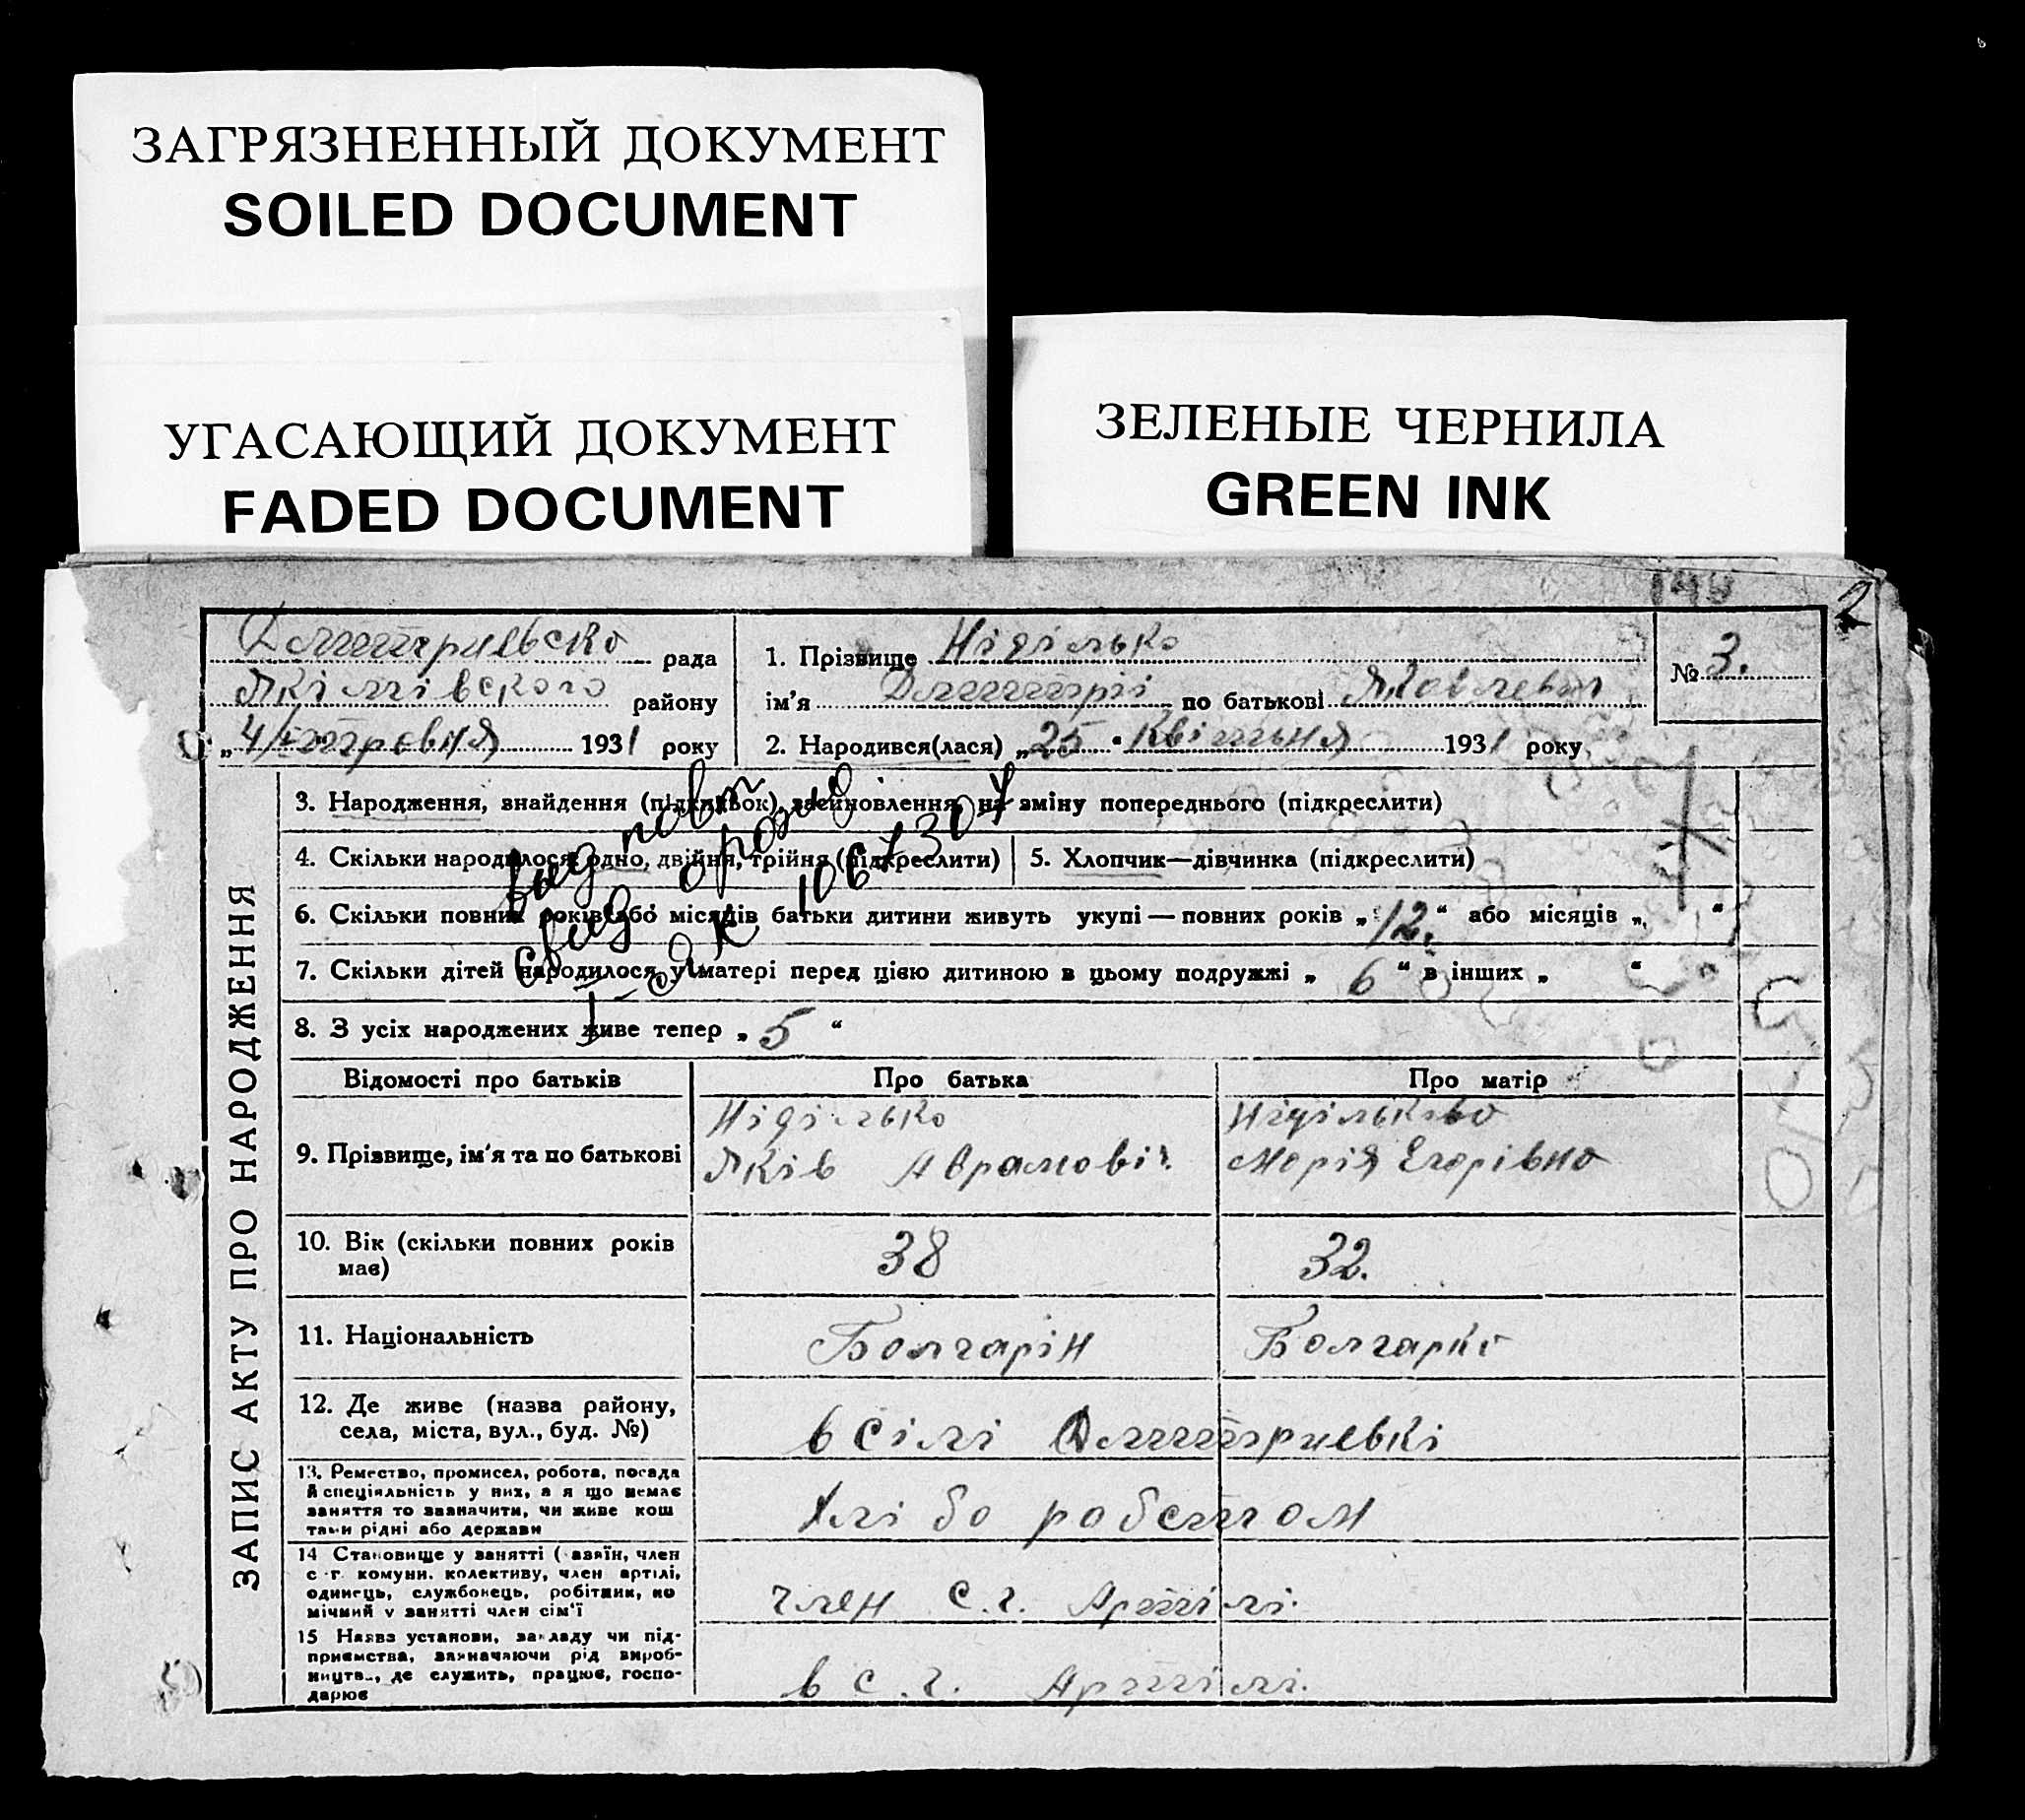 ЗАГРЯЗНЕННЫЙ ДОКУМЕНТ
SOILED DOCUMENT
УГАСАЮЩИЙ ДОКУМЕНТ
FADED DOCUMENT
ЗЕЛЕНЫЕ ЧЕРНИЛА
GREEN INK
2
Дмитриевско рада
Якімівского району
„4/травня 1931 року
1. Прізвище Ніділько
ім'я Дмитрій по батькові Яковлевич
2. Народився(лася) „25" Квітня 1931 року
№ 3.
ЗАПИС АКТУ ПРО НАРОДЖЕННЯ
3. Народження, знайдення (підкидьок), засиновлення, на зміну попереднього (підкреслити)
4. Скільки народилося: одно, двійня, трійня (підкреслити)
5. Хлопчик—дівчинка (підкреслити)
6. Скільки повних років або місяців батьки дитини живуть укупі — повних років „12." або місяців „ "
7. Скільки дітей народилося у матері перед цією дитиною в цьому подружжі „ 6 " в інших „ "
8. З усіх народжених живе тепер „ 5 "
Відомості про батьків
Про батька
Про матір
9. Прізвище, ім'я та по батькові
Ніділько
Яків Аврамовіч
Нідількова
Марія Егорівна
10. Вік (скільки повних років має)
38
32.
11. Національність
Болгарін
Болгарка
12. Де живе (назва району,
села, міста, вул., буд. №)
в сілі Дмитриевкі
13. Ремество, промисел, робота, посада
й спеціяльність у них, а я що немає
заняття то зазначити, чи живе кош
тами рідні або держави
Хлібо робством
14 Становище у занятті (хазяїн, член
с-г. комуни. колективу, член артілі,
одинець, службовець, робітник, по
мічний у занятті член сім'ї
член С.г. Артілі.
15 Назва установи, закладу чи під-
приємства, зазначаючи рід вироб-
ництв., де служить, працює, госпо-
дарює
в с.г. Артілі.